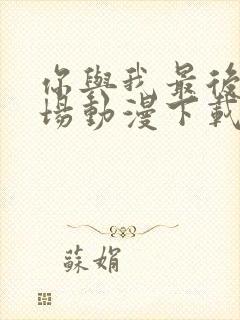 你與我最後
場動漫下載
蘇娟